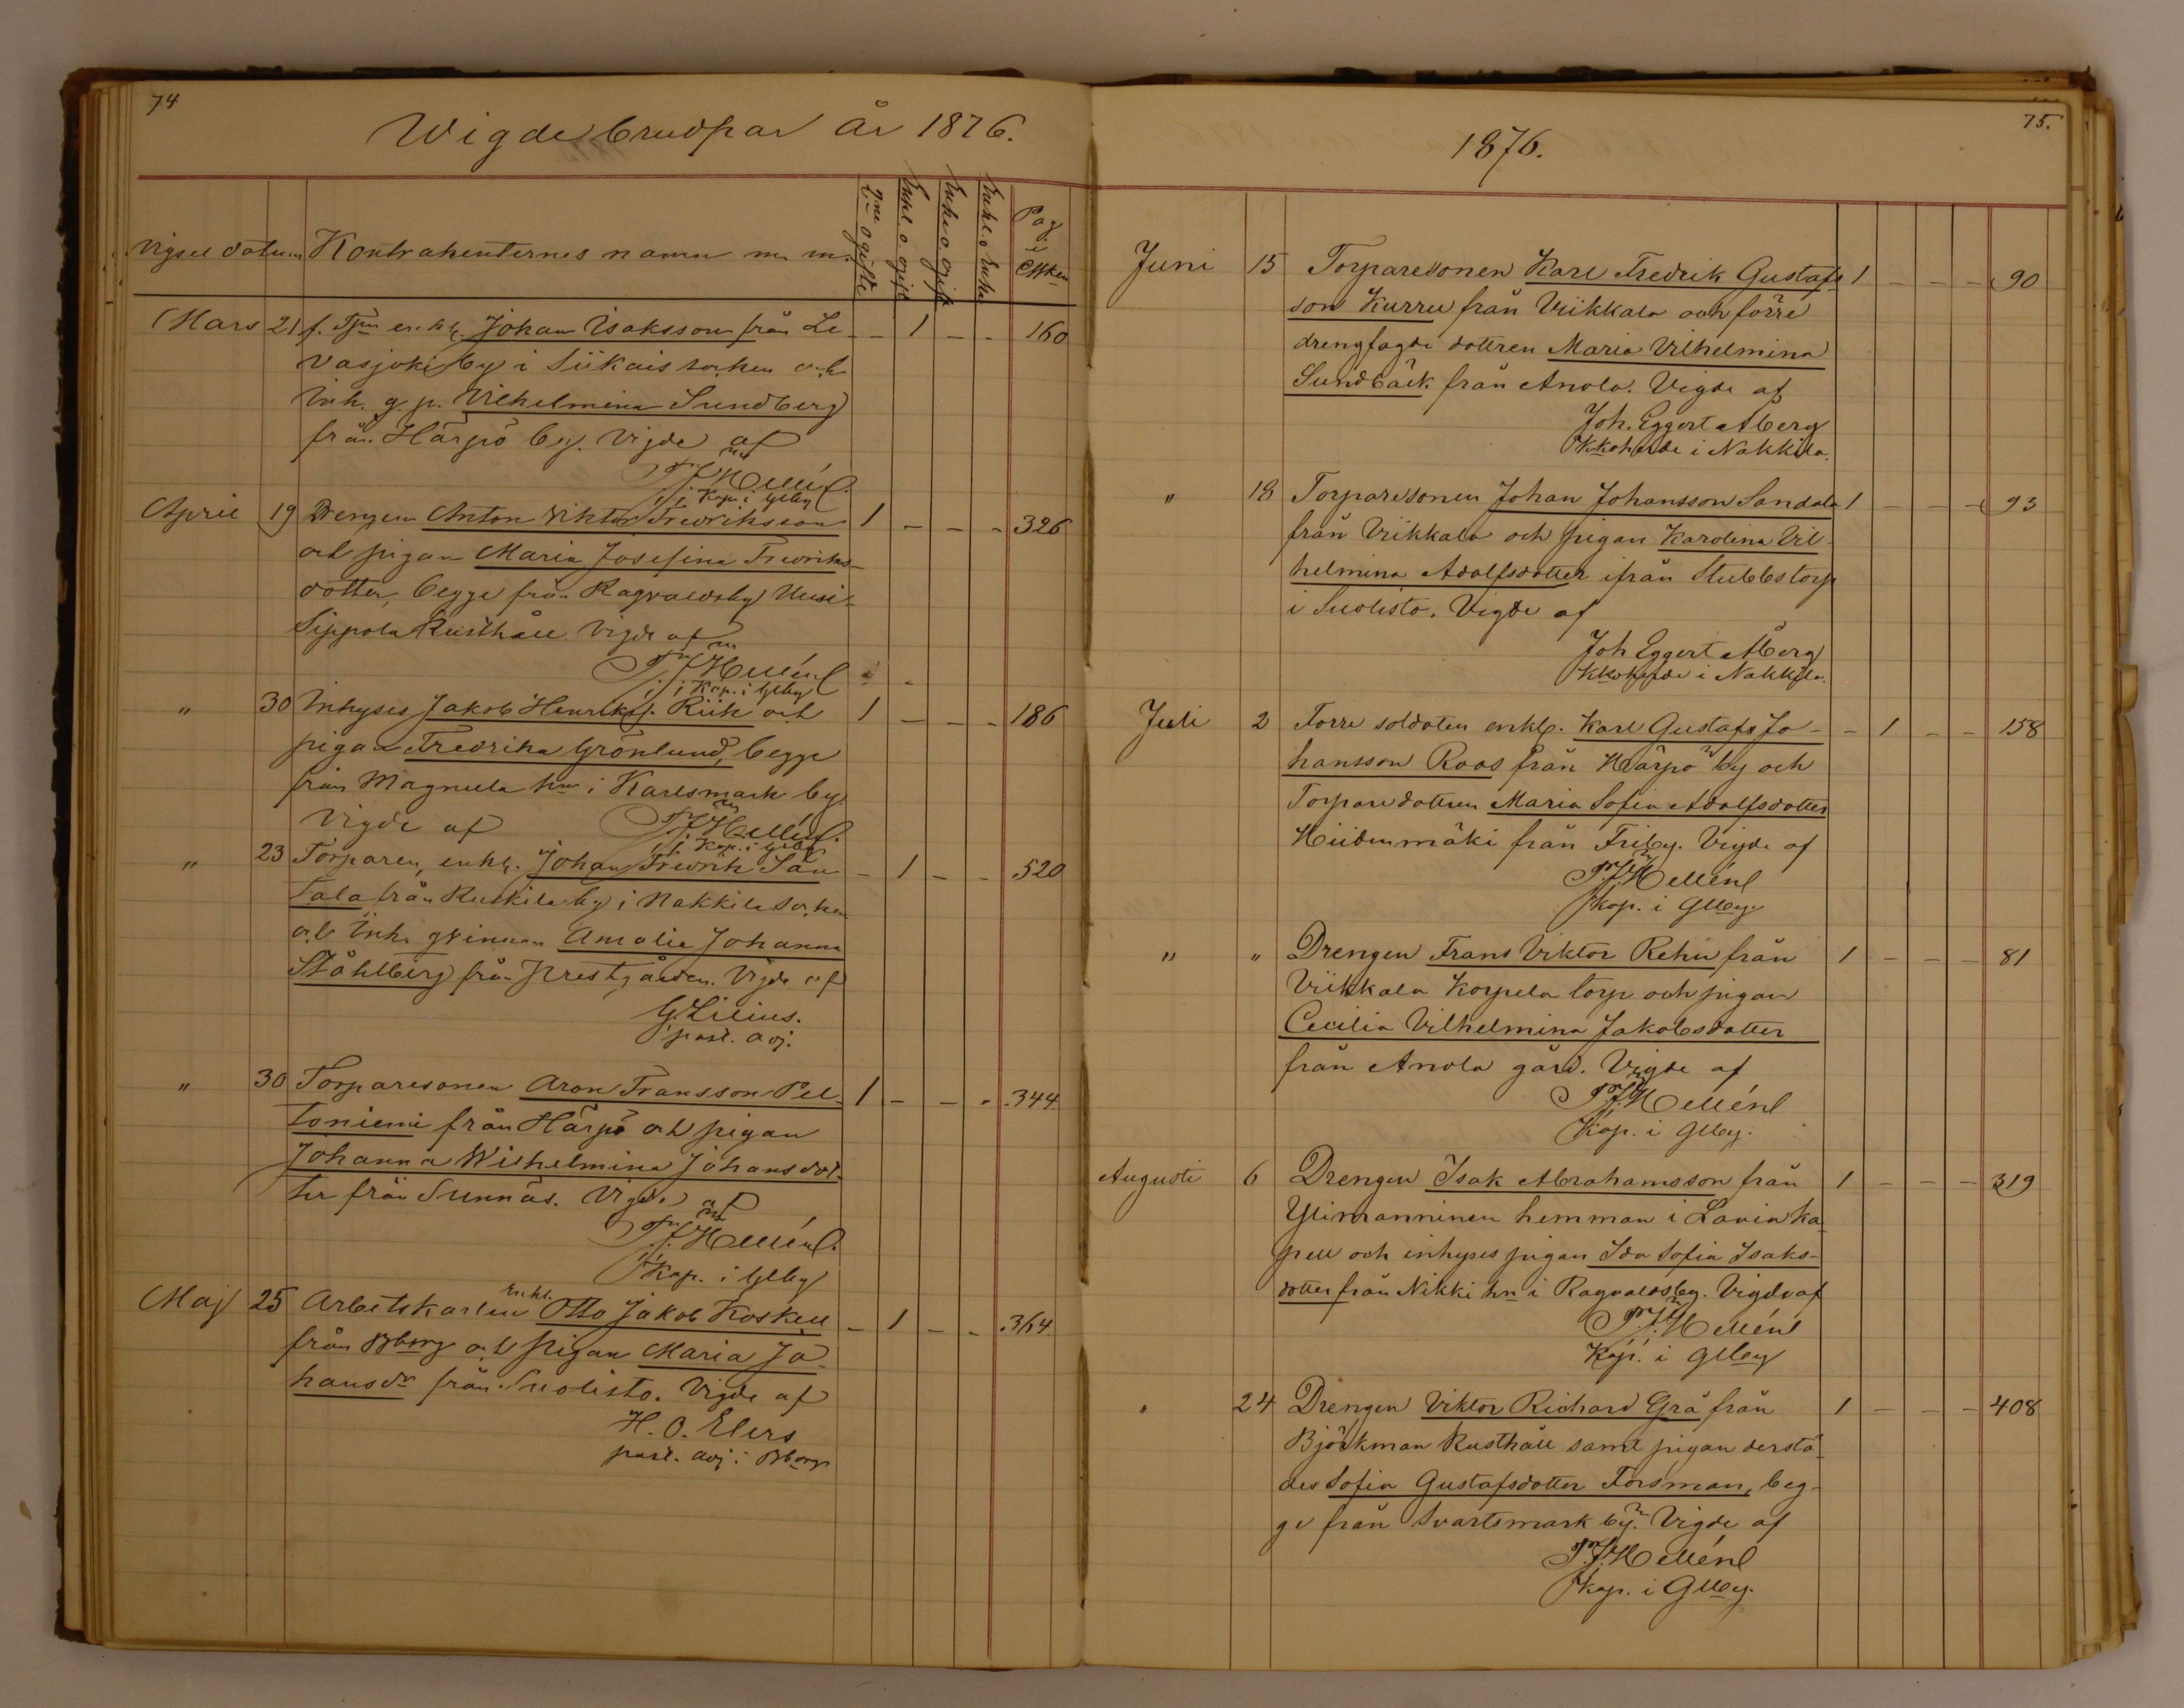 74
Wigde brudpar år 1876.
Vigsel datum Kontrahenternes namn m. m. 2ne ogifte Enkl. o ogift Enka o ogift Enkl. o Enka Pag. i
Mars 21 f. Tpn enkl. Johan Isaksson från Le - 1 - - 160
vasjoki by i Siikais socken och
Inh. g. p. Vilhelmina Sundberg
från Härpö by. Vigde af
T. J. Hellén
Kap. i Glby
April 19 Drengen Anton Viktor Fredriksson 1 - - - 326
och pigan Maria Josefina Fredriks-
dotter, begge från Ragvaldsby Uusi-
Sippola Rusthåll. Vigde af
T. J. Hellén
Kap. i Glby
" 30 Inhyses Jakob Henrikss. Riik och 1 - - - 186
pigan Fredrika Grönlund, begge
från Magnula hn i Karlsmark by.
Vigde af T. J. Hellén
Kap. i Glby
" 23 Torparen, enkl. Johan Fredrik San - 1 - - 520
tala från Ruskila by i Nakkila socken
och Inh. qvinnan Amalia Johanna
Ståhlberg från Prestgården. Vigde af
G. Lilius.
past. adj.
" 30 Torparesonen Aron Fransson Pel- 1 - - - 344
toniemi från Härpö och pigan
Johanna Wilhelmina Johansdot-
ter från Sunnäs. Vigde af
T. J. Hellén
Kap. i Glby
Maj 25 Arbetskarlen Enkl. Otto Jakob Koskell - 1 - - 364
från Bborg och pigan Maria Jo-
hansdr från Suolisto. Vigde af
H. O. Elers
past. adj. i Bborg
75.
1876.
Juni 15 Torparesonen Karl Fredrik Gustafs 1 - - - 90
son Kurru från Viikkala och förre
drengfogde dottren Maria Vilhelmina
Sundbäck från Anola. Vigde af
Joh. Eggert Åberg
Kkoherde i Nakkila.
" 18 Torparesonen Johan Johansson Sandala 1 - - - 93
från Viikkala och pigan Karolina Vil-
helmina Adolfsdotter ifrån Stubbstorp
i Suolisto. Vigde af
Joh Eggert Åberg
Kkoherde i Nakkila.
Juli 2 Förre soldaten enkl. Karl Gustafs Jo- - 1 - - 158
hansson Roos från Härpö by och
Torparedottren Maria Sofia Adolfsdotter
Hiidenmäki från Friby. Vigde af
T. J. Hellén
Kap. i Glby.
" " Drengen Frans Viktor Rehu från 1 - - - 81
Viikkala Korpela torp och pigan
Cecilia Vilhelmina Jakobsdotter
från Anola gård. Vigde af
T. J. Hellén
Kap. i Glby.
Augusti 6 Drengen Isak Abrahamsson från 1 - - - 319
Ylimanninen hemman i Lavia ka-
pell och inhyses pigan Ida Sofia Isaks-
dotter från Nikki hn i Ragvaldsby. Vigde af
T. J. Hellén
Kap. i Glby
" 24 Drengen Viktor Richard Grå från 1 - - - 408
Björkman Rusthåll samt pigan derstä
des Sofia Gustafsdotter Forsman, beg-
ge från Svartsmark by. Vigde af
T. J. Hellén
Kap. i Glby.